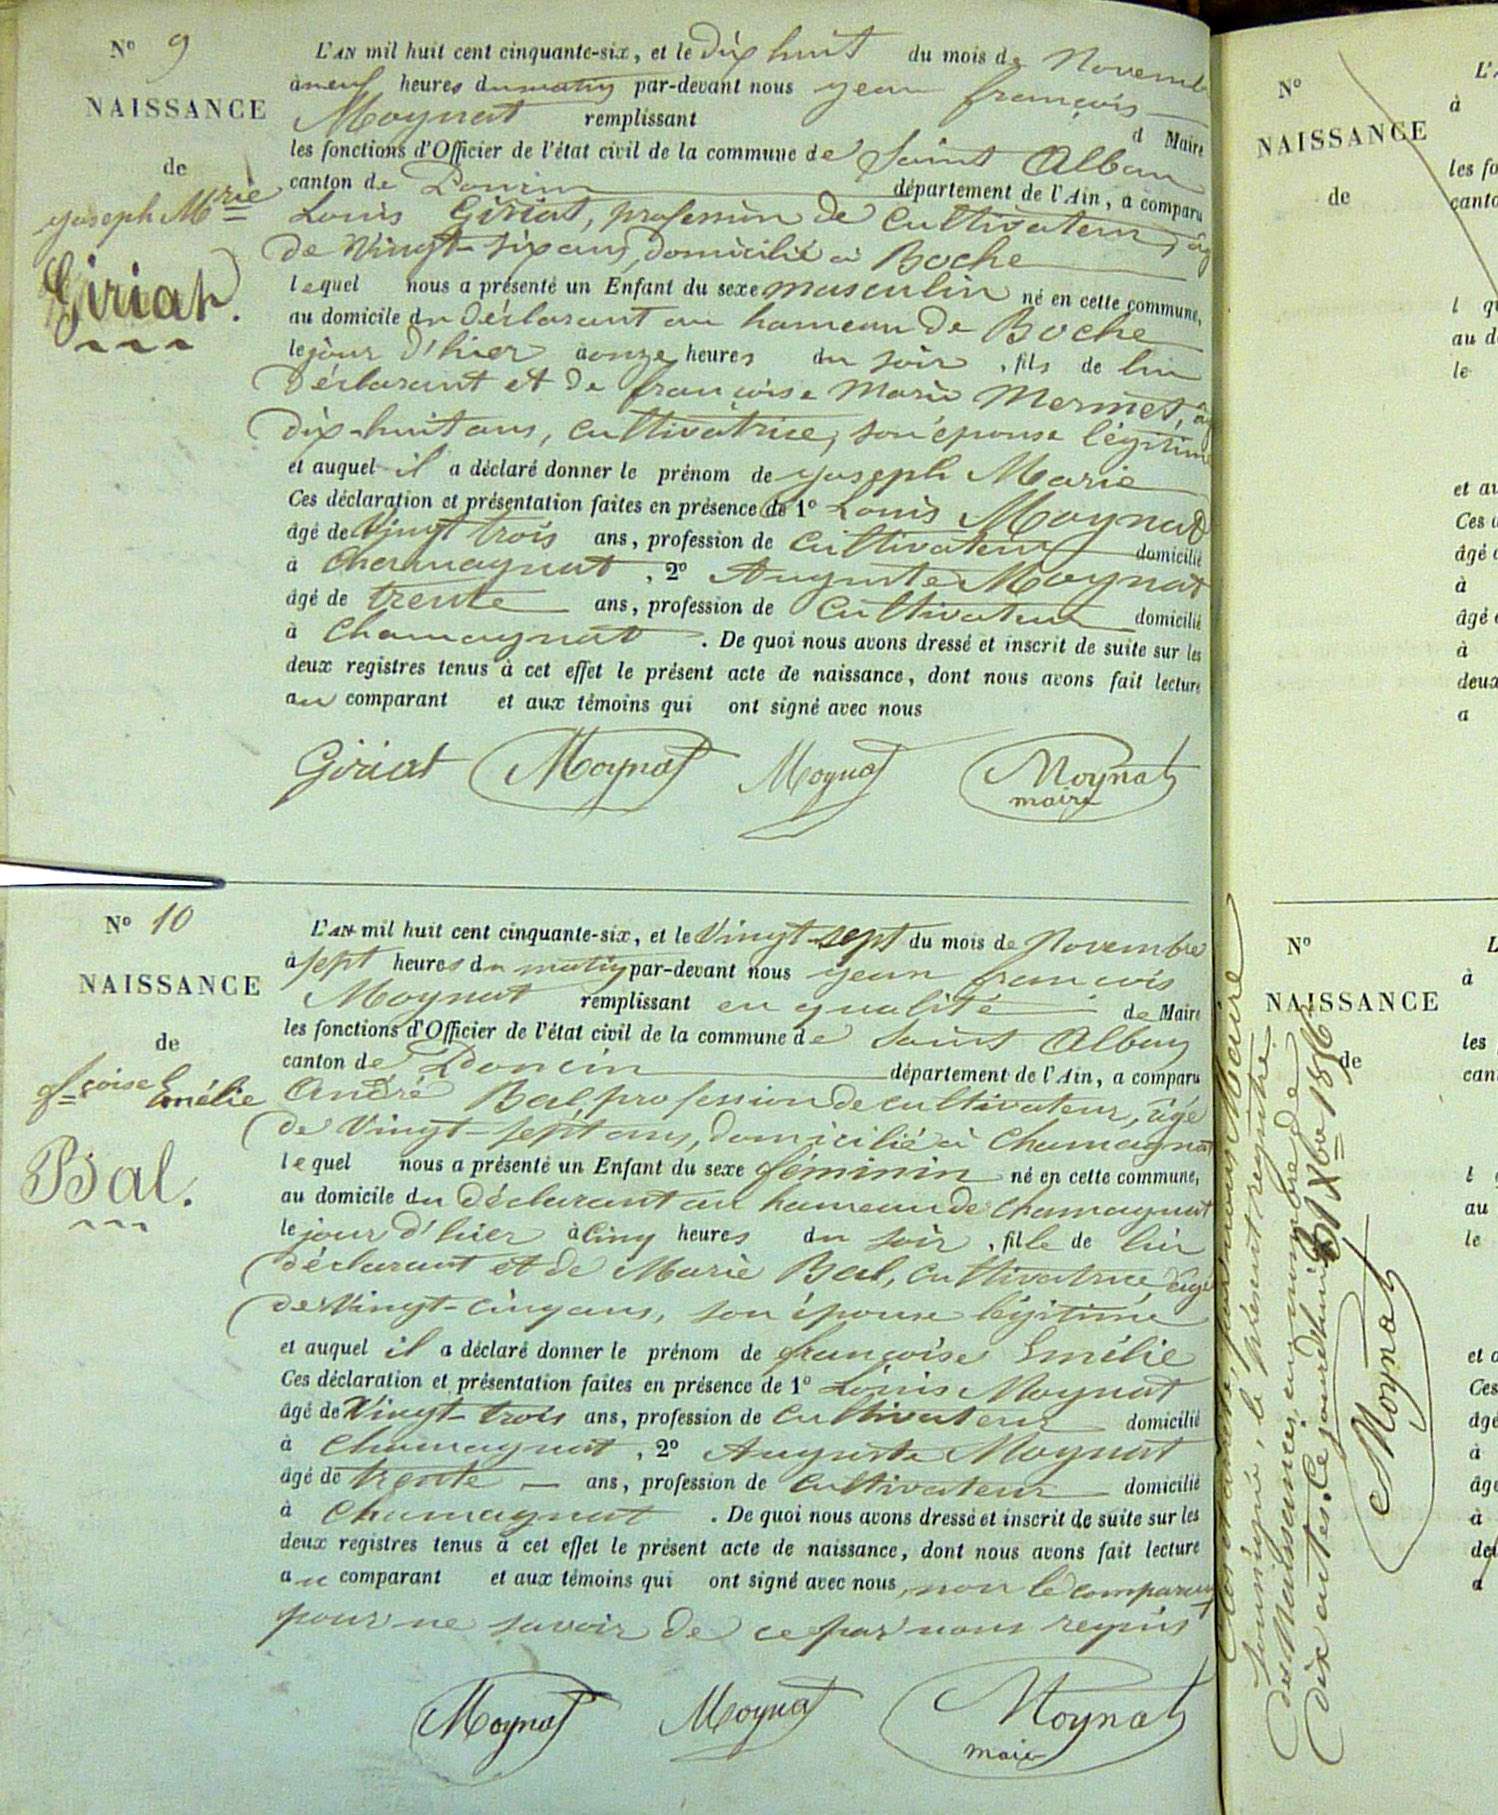 N° 9
NAISSANCE
de
Joseph M.rie
Giriat.
L'AN mil huit cent cinquante-six, et le dix huit du mois de Novembre
à neuf heures du matin par-devant nous Jean françois
Moynat remplissant d Maire
les fonctions d'Officier de l'état civil de la commune de Saint Alban
canton de Poncin département de l'Ain, a comparu
Louis Giriat, profession de cultivateur, âgé
de Vingt-six ans, domicilié à Boche
lequel nous a présenté un Enfant du sexe masculin né en cette commune,
au domicile du déclarant au hameau de Boche
le jour d'hier à onze heures du soir, fils de lui
déclarant et de françoise Marie Mermet, âg
dix-huit ans, cultivatrice, son épouse légitime
et auquel il a déclaré donner le prénom de Joseph Marie
Ces déclaration et présentation faites en présence de 1° Louis Moynat
âgé de Vingt trois ans, profession de cultivateur domicilié
à Chamagnat, 2° Auguste Moynat
âgé de trente ans, profession de cultivateur domicilié
à Chamagnat. De quoi nous avons dressé et inscrit de suite sur les
deux registres tenus à cet effet le présent acte de naissance, dont nous avons fait lecture
au comparant et aux témoins qui ont signé avec nous
Giriat Moynat Moynat Moynat
maire
N° 10
NAISSANCE
de
f.çoise Emélie
Bal.
L'AN mil huit cent cinquante-six, et le Vingt-sept du mois de Novembre
à sept heures du matin par-devant nous Jean françois
Moynat remplissant en qualité de Maire
les fonctions d'Officier de l'état civil de la commune de Saint Alban
canton de Poncin département de l'Ain, a comparu
André Bal profession de cultivateur, âgé
de Vingt-sept ans, domicilié à Chamagnat
lequel nous a présenté un Enfant du sexe féminin né en cette commune,
au domicile du déclarant au hameau de Chamagnat
le jour d'hier à cinq heures du soir, fille de lui
déclarant et de Marie Bal, cultivatrice, âgé
de Vingt-cinq ans, son épouse légitime
et auquel il a déclaré donner le prénom de françoise Emélie
Ces déclaration et présentation faites en présence de 1° Louis Moynat
âgé de Vingt-trois ans, profession de cultivateur domicilié
à Chamagnat, 2° Auguste Moynat
âgé de trente ans, profession de cultivateur domicilié
à Chamagnat. De quoi nous avons dressé et inscrit de suite sur les
deux registres tenus à cet effet le présent acte de naissance, dont nous avons fait lecture
au comparant et aux témoins qui ont signé avec nous, non le comparant
pour ne savoir de ce par nous requis
Moynat Moynat Moynat
maire
N°
NAISSANCE
de
L'
à
les fo
canto
l qu
au d
le
et au
Ces
âgé
à
âgé
à
deux
a
N°
NAISSANCE
de
Clos et arrêté, par nous Maire
soussigné, le présent registre
des Naissances, au nombre de
dix actes. Ce jourd'hui 31 Xbre 1856
Moynat
L
à
les
can
l
au
le
et
Ces
âgé
à
âgé
à
de
a